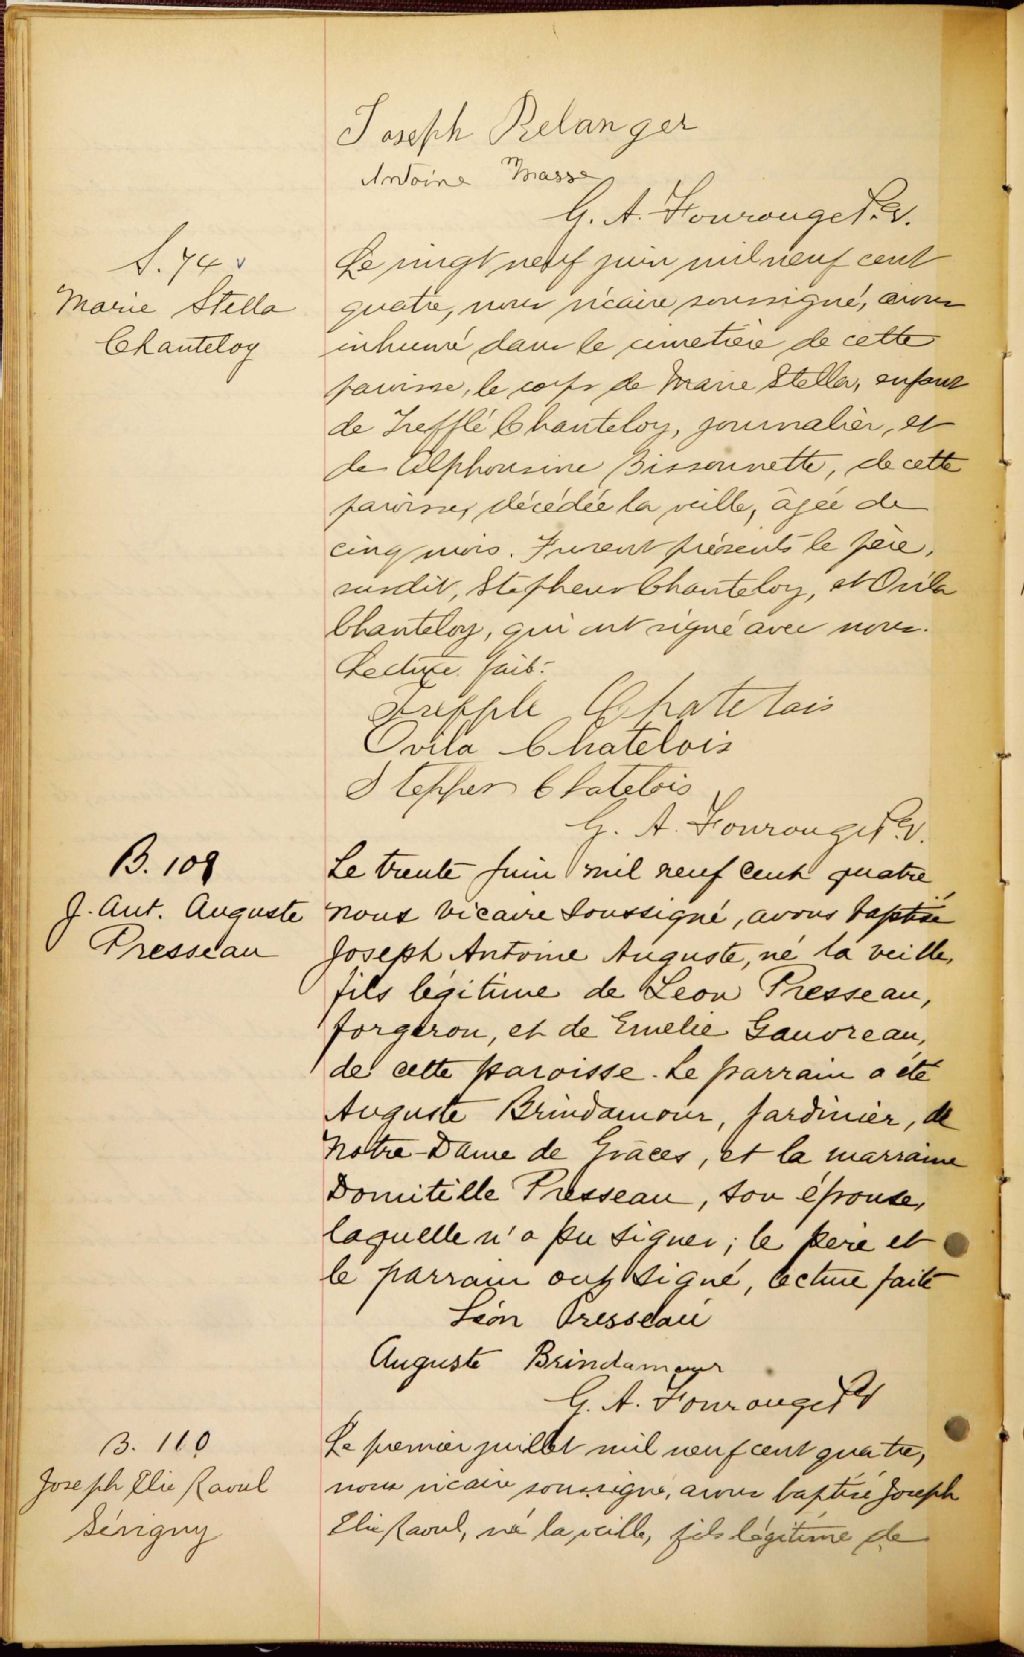 Joseph Belanger
Antoine Masse
G. A. Fourouge Ptr. V.
S. 74
Marie Stella
Chanteloy
Le vingt neuf juin mil neuf cent
quatre, nous vicaire soussigné, avons
inhumé dans le cimetière de cette
paroisse, le corps de Marie Stella, enfant
de Trefflé Chanteloy, journalier, et
de Alphonsine Bissonnette, de cette
paroisse, décédée la veille, âgée de
cinq mois. Furent présents le père,
susdit, Stephen Chanteloy, et Ovila
Chanteloy, qui ont signé avec nous.
Lecture fait.
Treffle Chatelois
Ovila Chatelois
Stepher Chatelois
G. A. Fourouge Ptr. V.
B. 109
J. Ant. Auguste
Presseau
Le trente Juin mil neuf cent quatre
nous vicaire soussigné, avons baptisé
Joseph Antoine Auguste, né la veille,
fils légitime de Leon Presseau,
forgeron, et de Emelie Gauvreau,
de cette paroisse. Le parrain a été
Auguste Brindamour, Jardinier, de
Notre-Dame de Grâces, et la marraine
Domitille Presseau, son épouse,
laquelle n'a pu signer; le père et
le parrain ont signé, lecture faite
Léon Presseau
Auguste Brindamour
G. A. Fourouge Ptr V
B. 110
Joseph Elie Raoul
Sévigny
Le premier juillet mil neuf cent quatre,
nous vicaire soussigné, avons baptisé Joseph
Elie Raoul, né la veille, fils légitime de